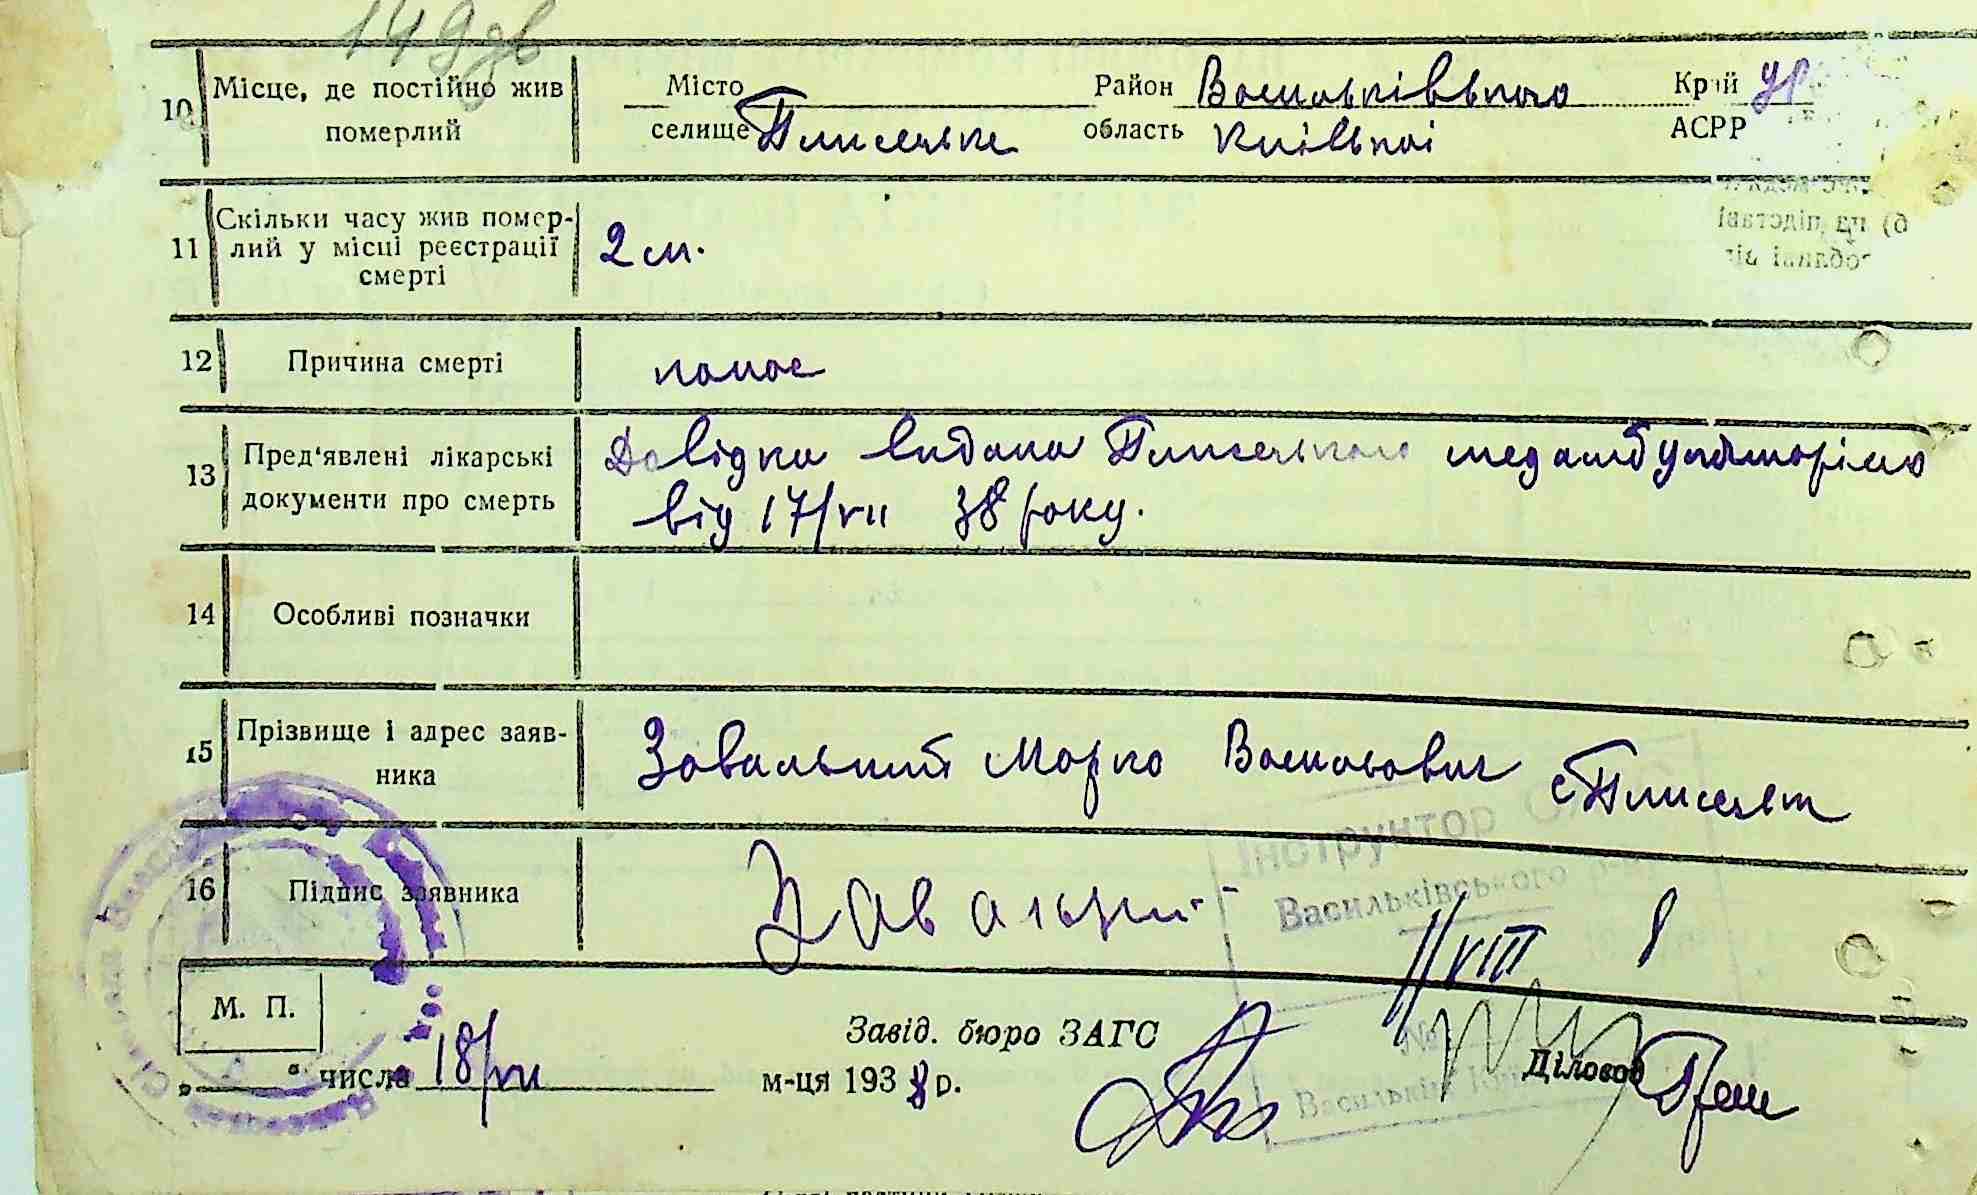 149 зв
10 Місце, де постійно жив померлий
Місто Район Васильківського Край УР
селище Плисецьке область Київської АСРР
11 Скільки часу жив помер-
лий у місці реєстрації
смерті
2 м.
12 Причина смерті
понос
13 Пред'явлені лікарські
документи про смерть
Довідка видана Плисецькою медамбулаторією
від 17/VII 38 року.
14 Особливі позначки
15 Прізвище і адрес заяв-
ника
Завальний Марко Васильович с Плисецьк
16 Підпис заявника
Завальний
Інструктор
Васильківського
11/VIII 8
М. П.
Завід. бюро ЗАГС
№
Діловод
„ " числа 18/VII м-ця 1938 р.
Васильків
б) на підставі